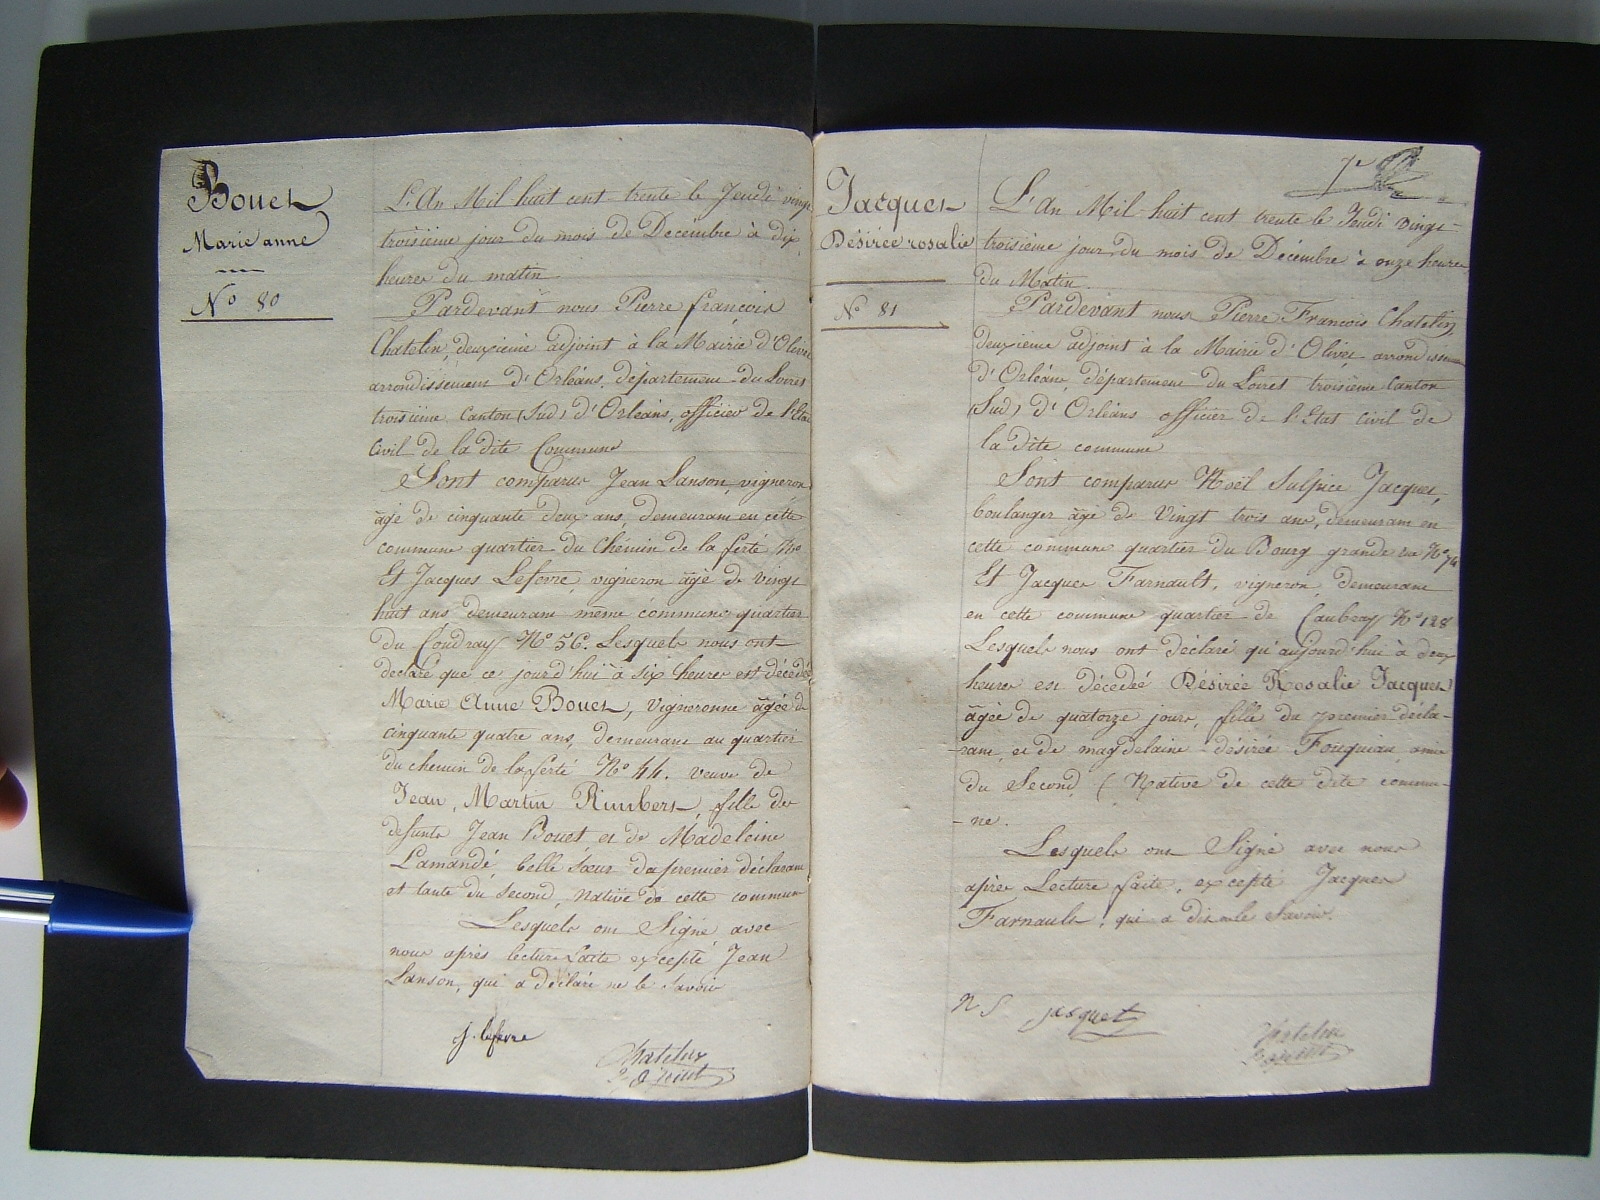 Bouet
Marie anne
N° 80
L'An Mil huit cent trente le Jeudi vingt
troisième jour du mois de Décembre à dix
heures du matin
Pardevant nous Pierre françois
Chatelin, deuxième adjoint à la Mairie d'Olivet
arrondissement d'Orléans, département du Loiret
troisième Canton (Sud) d'Orléans, officier de l'Etat
Civil de la dite Commune
Sont comparus Jean Lanson, vigneron
âgé de cinquante deux ans, demeurant en cette
commune quartier du Chemin de la ferté
Et Jacques Lefevre, vigneron âgé de vingt
huit ans demeurant même commune quartier
du Coudray N° 56. Lesquels nous ont
declaré que ce jourd'hui à six heures est décédée
Marie Anne Bouet, Vigneronne âgée de
cinquante quatre ans, demeurant au quartier
du chemin de la ferté N° 44. veuve de
Jean, Martin Rimbert, fille de
defunts Jean Bouet et de Madeleine
Lamandé, belle sœur du premier déclarant
et tante du second, native de cette commune
Lesquels ont Signé avec
nous après lecture faite excepté Jean
Lanson, qui a déclaré ne le Savoir
J. lefevre
Chatelin
2e adjoint
7e
Jacquet
Désirée rosalie
N° 81
L'An Mil huit cent trente le Jeudi vingt-
troisième jour du mois de Décembre à onze heures
du Matin.
Pardevant nous Pierre François Chatelin,
deuxième adjoint à la Mairie d'Olivet arrondissement
d'Orléans, département du Loiret troisième Canton
(Sud) d'Orléans officier de l'Etat Civil de
la dite commune
Sont comparus Noël Sulpice Jacquet,
boulanger âgé de Vingt trois ans, demeurant en
cette commune quartier du Bourg grande rue N° 74
Et Jacques Farnault, vigneron, demeurant
en cette commune quartier de Caubray N° 128
Lesquels nous ont déclaré qu'aujourd'hui à deux
heures est décédée Désirée Rosalie Jacquet
âgée de quatorze jours, fille du premier décla-
-rant, et de magdelaine désirée Fouquiau, amie
du Second, (Native de cette dite commu-
-ne.
Lesquels ont Signé avec nous
après Lecture faite, excepté Jacques
Farnault, qui a dit ne le Savoir.
N S Jacquet
Chatelin
2e adjoint